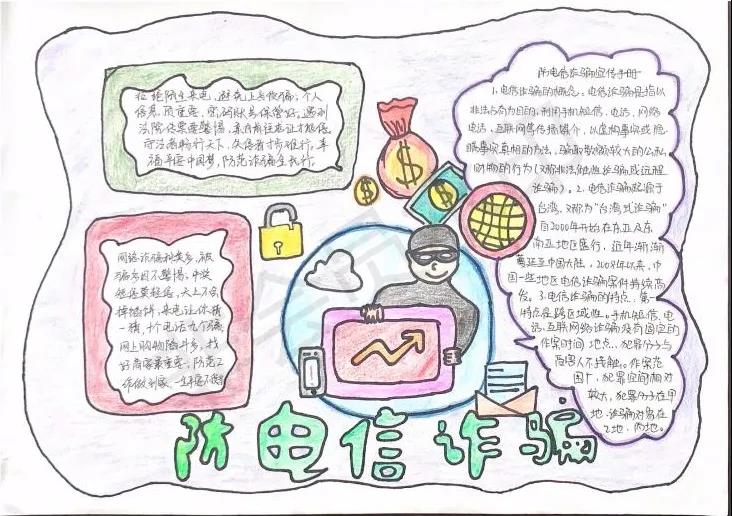 拒绝陌生来电，避免上当被骗；个人
信息须重要，密码账号保管好；遇到
法院传票要警惕，亲自前往查证才能信
守法者畅行天下，失信者寸步难行，幸
福牵手中国梦，防范诈骗在我行。
网络诈骗种类多，被
骗多因不警惕，中奖
绝总莫轻信，天上不会
掉馅饼，来电让你猜一
猜，十个电话九个骗，
网上购物陷井多，找
好商家最重要，防范工
作做到家，
防电信诈骗宣传手册
1.电信诈骗的概念：电信诈骗是指以
非法占有为目的，利用手机短信，电话，网络
电话，互联网等传播媒介，以虚构事实或隐
瞒事实真相的方法，骗取数额较大的公私
财物的行为（又称非法他性诈骗或远程
诈骗）。2.电信诈骗起源于
台湾，又称为“台湾式诈骗”
自2000年开始在东亚及东
南亚地区盛行，近年渐渐
蔓延至中国大陆，2008年以来，中
国一些地区电信诈骗案件持续高
发。3.电信诈骗的特点：第一
特点是跨区域性，手机短信，电
话，互联网络诈骗没有固定的
作案时间、地点，犯罪分子与
受害人不接触。作案范
围广，犯罪空间相对
较大，犯罪分子在甲
地，诈骗对象在
乙地、丙地。
防电信诈骗